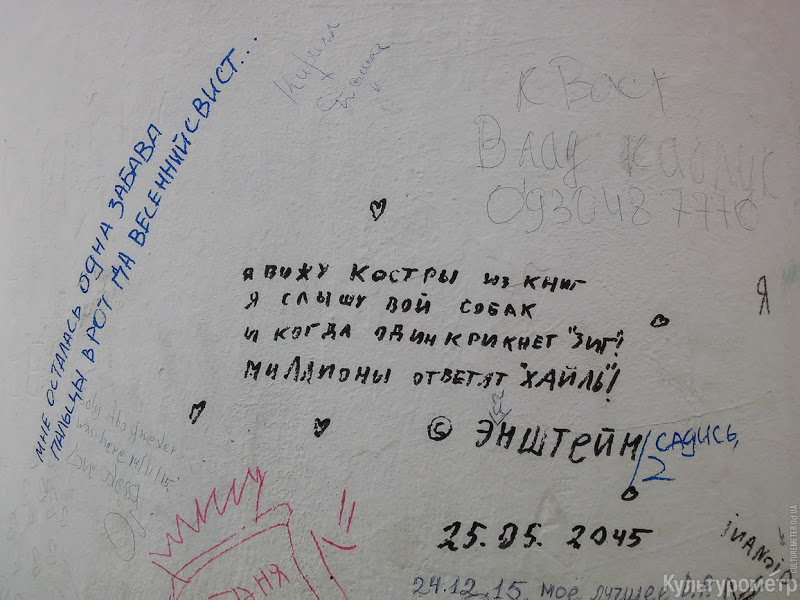 МНЕ ОСТАЛАСЬ ОДНА ЗАБАВА
ПАЛЬЦЫ В РОТ ДА ВЕСЕННИЙ СВИСТ...
Кирилл
К Вост
Влад каблук
0930487770
Я ВИЖУ КОСТРЫ ИЗ КНИГ
Я СЛЫШУ ВОЙ СОБАК
И КОГДА ОДИН КРИКНЕТ "ЗИГ"!
МИЛЛИОНЫ ОТВЕТЯТ "ХАЙЛЬ"!
Я
© ЭНШТЕЙН/САДИСЬ,
2
was here 14/11/15.
25.05.2045
24.12.15. мое лучшее
АНЯ
Культурометр
CULTUREMETER.OD.UA